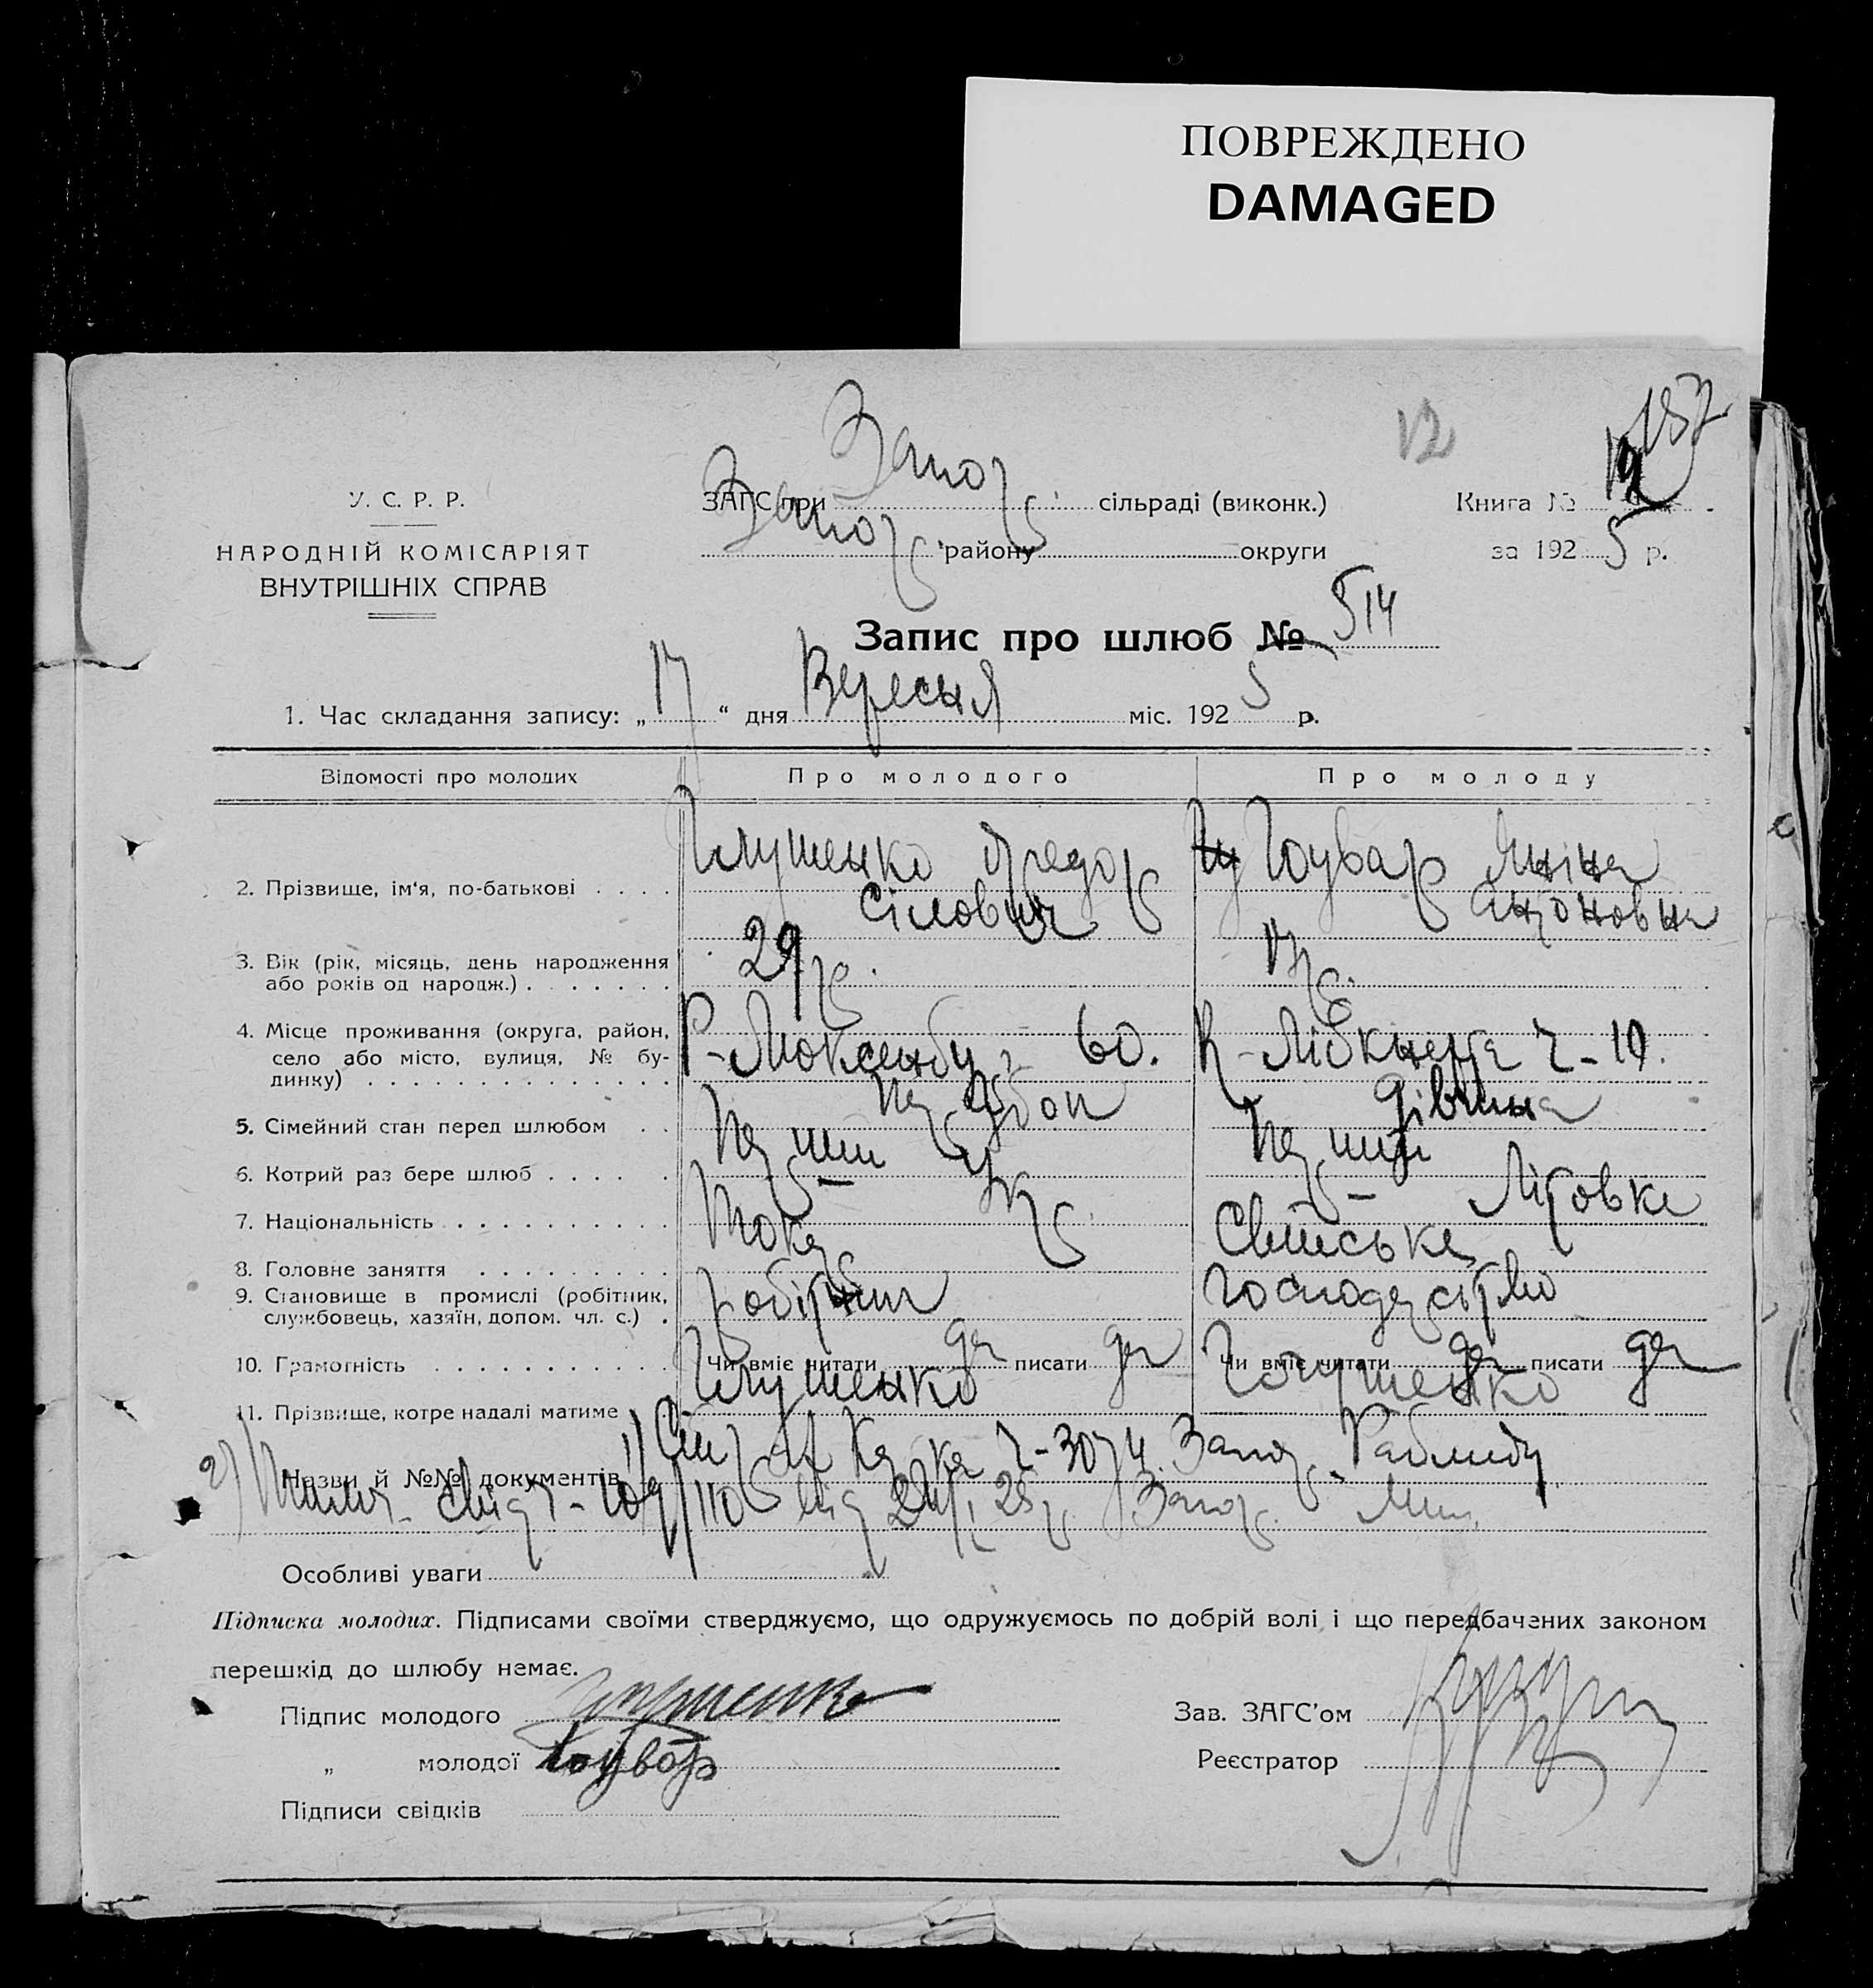 ПОВРЕЖДЕНО
DAMAGED
12
157
У. С. Р. Р.
НАРОДНІЙ КОМІСАРІЯТ
ВНУТРІШНІХ СПРАВ
ЗАГС при Запор сільраді (виконк.)
Запор району округи
Книга №
за 1925 р.
Запис про шлюб № 514
1. Час складання запису: „17“ дня Вересня міс. 1925 р.
Відомості про молодих
Про молодого
Про молоду
2. Прізвище, ім'я, по-батькові
Глущенко Федор
Сілович
Гоувар Яніна
Антоновна
3. Вік (рік, місяць, день народження
або років од народж.)
29 р.
17 р.
4. Місце проживання (округа, район,
село або місто, вулиця, № бу-
динку)
Р-Люксембург 60.
К-Лібкнехта ч-19.
5. Сімейний стан перед шлюбом
парубок
дівчина
6. Котрий раз бере шлюб
перший
перший
7. Національність
Укр.
Літовка
8. Головне заняття
Токарь
Сільське
9. Становище в промислі (робітник,
службовець, хазяїн, допом. чл. с.)
робітник
господарство
10. Грамотність
Чи вміє читати да писати да
Чи вміє читати да писати да
11. Прізвище, котре надалі матиме
Глущенко
Глущенко
Назви й №№ документів
1) ч-3074. Запор.
2) 109/110 від 25 р. Запор.
Особливі уваги
Підписка молодих. Підписами своїми стверджуємо, що одружуємось по добрій волі і що передбачених законом
перешкід до шлюбу немає.
Підпис молодого Глущенко
„ молодої Гоувар
Підписи свідків
Зав. ЗАГС'ом
Реєстратор